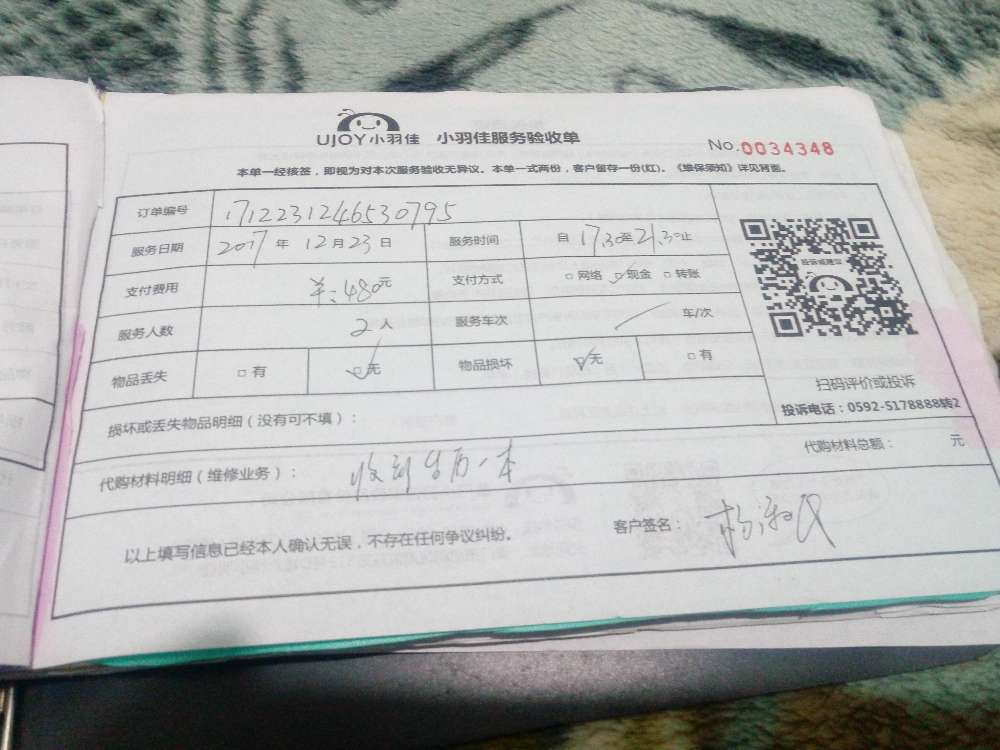 UJOY小羽佳 小羽佳服务验收单 No.0034348
本单一经核签，即视为对本次服务验收无异议。本单一式两份，客户留存一份(红)。《维保须知》详见背面。
订单编号 1712231246530795
服务日期 2017年12月23日 服务时间 自17.30至21.30止
支付费用 ¥:480元 支付方式 □网络 ☑现金 □转账
服务人数 2人 服务车次 / 车/次
物品丢失 □有 ☑无 物品损坏 ☑无 □有
投诉或建议
扫码评价或投诉
投诉电话：0592-5178888转2
损坏或丢失物品明细（没有可不填）：
代购材料明细（维修业务）： 收到 一本 代购材料总额： 元
以上填写信息已经本人确认无误，不存在任何争议纠纷。 客户签名：